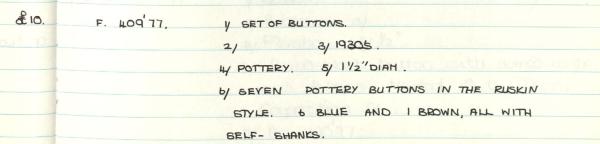 £10. F. 409'77. 1/ SET OF BUTTONS.
2/ 3/ 1930s.
4/ POTTERY. 5/ 1½" DIAM.
6/ SEVEN POTTERY BUTTONS IN THE RUSKIN
STYLE. 6 BLUE AND 1 BROWN, ALL WITH
SELF-SHANKS.